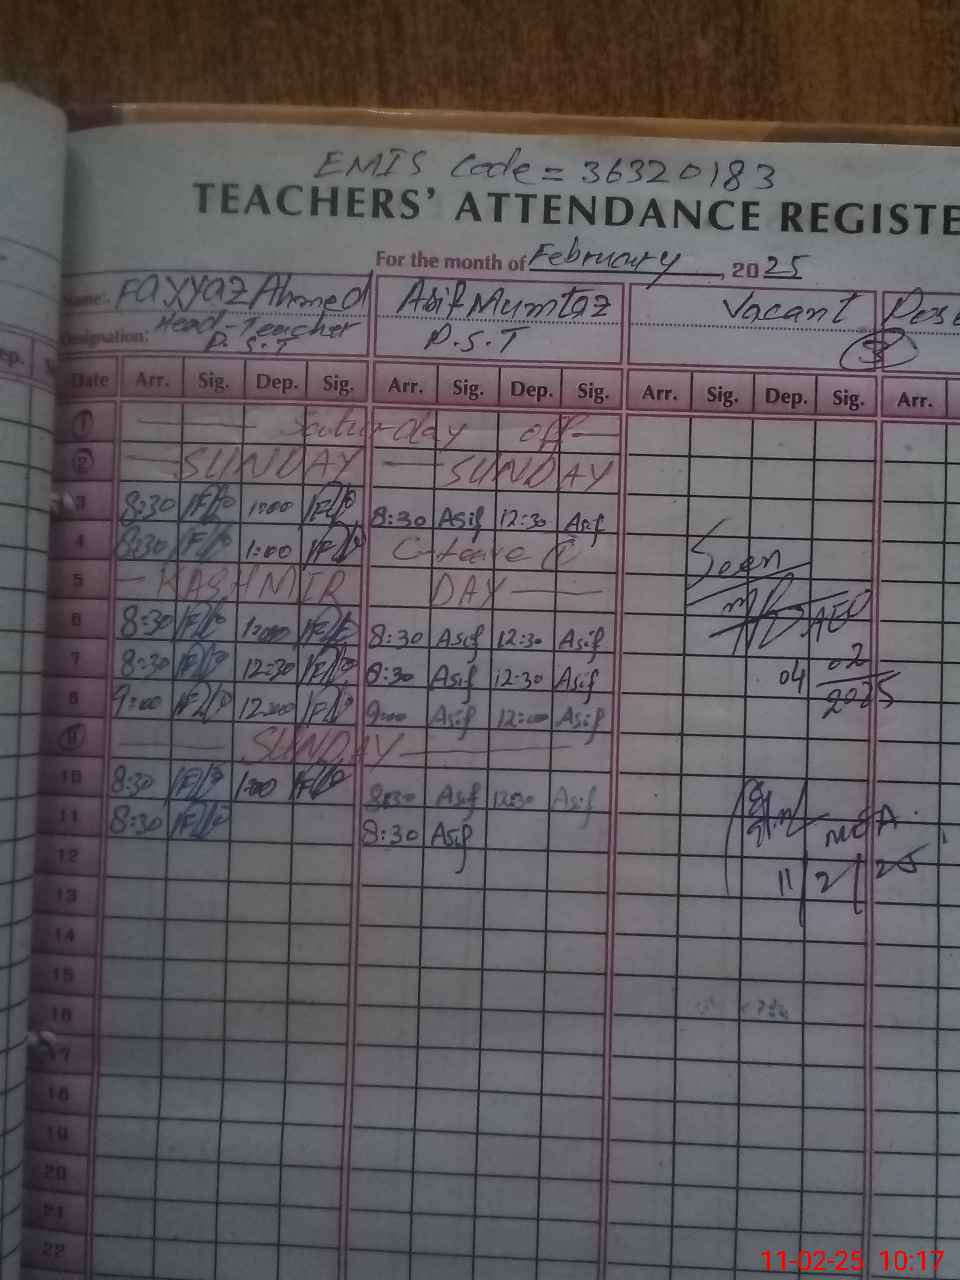 EMIS Code = 36320183
TEACHERS' ATTENDANCE REGISTE
For the month of February, 2025
Name: Fayyaz Ahmed Asif Mumtaz Vacant Pos
Designation: Head-Teacher P.S.T P.S.T 3
Date Arr. Sig. Dep. Sig. Arr. Sig. Dep. Sig. Arr. Sig. Dep. Sig. Arr.
1 Saturday off
2 SUNDAY SUNDAY
3 8:30 1:00 8:30 Asif 12:30 Asif
4 8:30 1:00 C-leave Seen
5 KASHMIR DAY AEO
6 8:30 1:00 8:30 Asif 12:30 Asif
7 8:30 12:30 8:30 Asif 12:30 Asif 04 02
8 9:00 12:00 9:00 Asif 12:00 Asif 2025
9 SUNDAY
10 8:30 1:00 8:30 Asif 12:30 Asif
11 8:30 8:30 Asif MEA
12 11/2/25
13
14
15
16
17
18
19
20
21
22
11-02-25 10:17